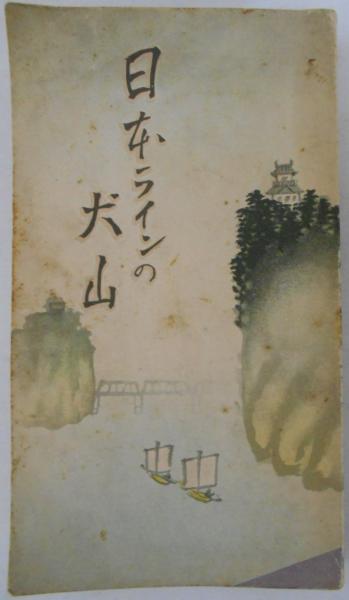 日本ラインの
犬山